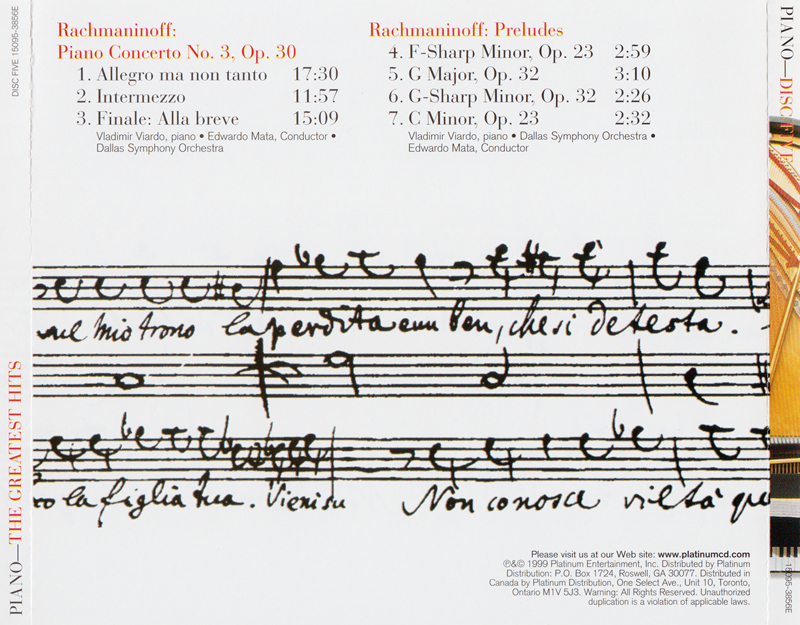 DISC FIVE 15095-3856E
PIANO—THE GREATEST HITS
Rachmaninoff:
Piano Concerto No. 3, Op. 30
1. Allegro ma non tanto 17:30
2. Intermezzo 11:57
3. Finale: Alla breve 15:09
Vladimir Viardo, piano • Edwardo Mata, Conductor •
Dallas Symphony Orchestra
Rachmaninoff: Preludes
4. F-Sharp Minor, Op. 23 2:59
5. G Major, Op. 32 3:10
6. G-Sharp Minor, Op. 32 2:26
7. C Minor, Op. 23 2:32
Vladimir Viardo, piano • Dallas Symphony Orchestra •
Edwardo Mata, Conductor
PIANO—DISC FIVE
mio trono la perdita e un ben, che si detesta.
la figlia tua. Vieni su Non conosce viltà
Please visit us at our Web site: www.platinumcd.com
℗&© 1999 Platinum Entertainment, Inc. Distributed by Platinum
Distribution: P.O. Box 1724, Roswell, GA 30077. Distributed in
Canada by Platinum Distribution, One Select Ave., Unit 10, Toronto,
Ontario M1V 5J3. Warning: All Rights Reserved. Unauthorized
duplication is a violation of applicable laws.
15095-3856E